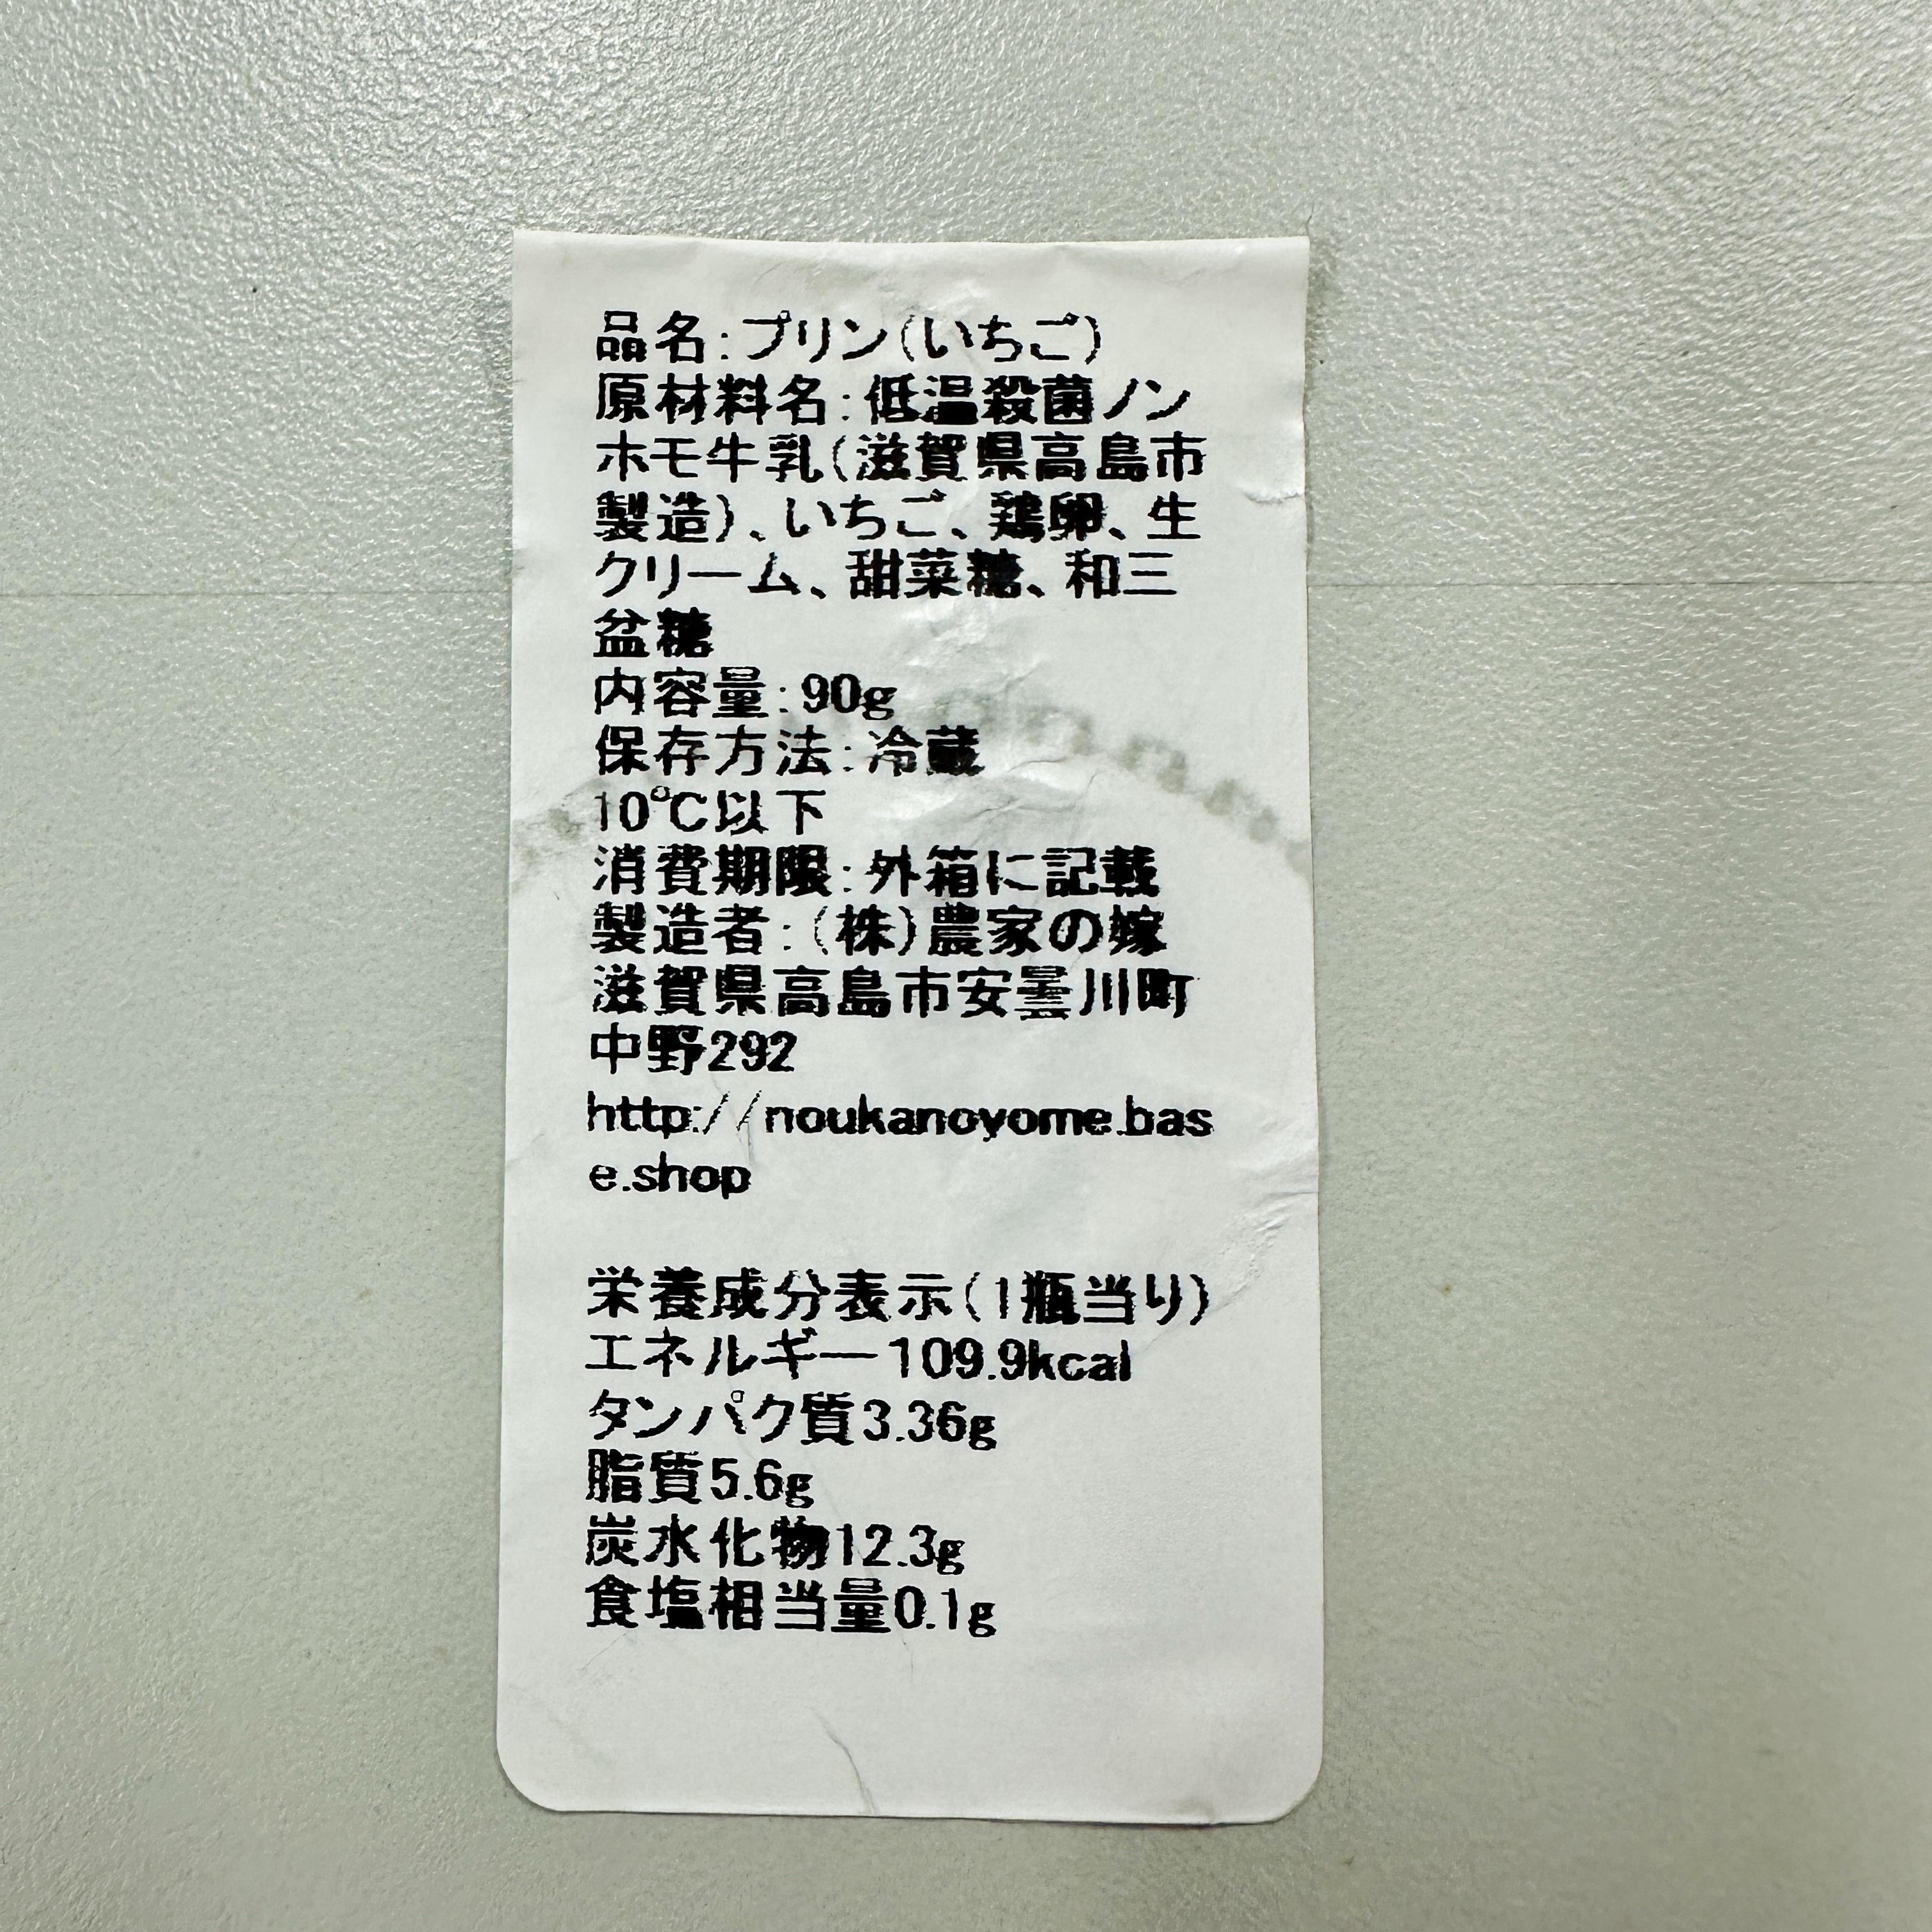 品名:プリン(いちご)
原材料名:低温殺菌ノン
ホモ牛乳(滋賀県高島市
製造)、いちご、鶏卵、生
クリーム、甜菜糖、和三
盆糖
内容量:90g
保存方法:冷蔵
10℃以下
消費期限:外箱に記載
製造者:(株)農家の嫁
滋賀県高島市安曇川町
中野292
http://noukanoyome.bas
e.shop
栄養成分表示(1瓶当り)
エネルギー109.9kcal
タンパク質3.36g
脂質5.6g
炭水化物12.3g
食塩相当量0.1g